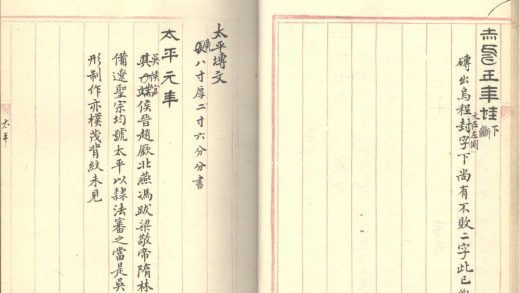 赤烏五年封下斷
文在左側
磚出烏程封字下尚有不敗二字此已
太平塼文
八寸厚二寸六分分書
太平元年
侯官侯晉趙廞北燕馮跋梁敬帝隋林
備遼聖宗均號太平以隸法審之當是吳
形制作亦樸茂背紋未見